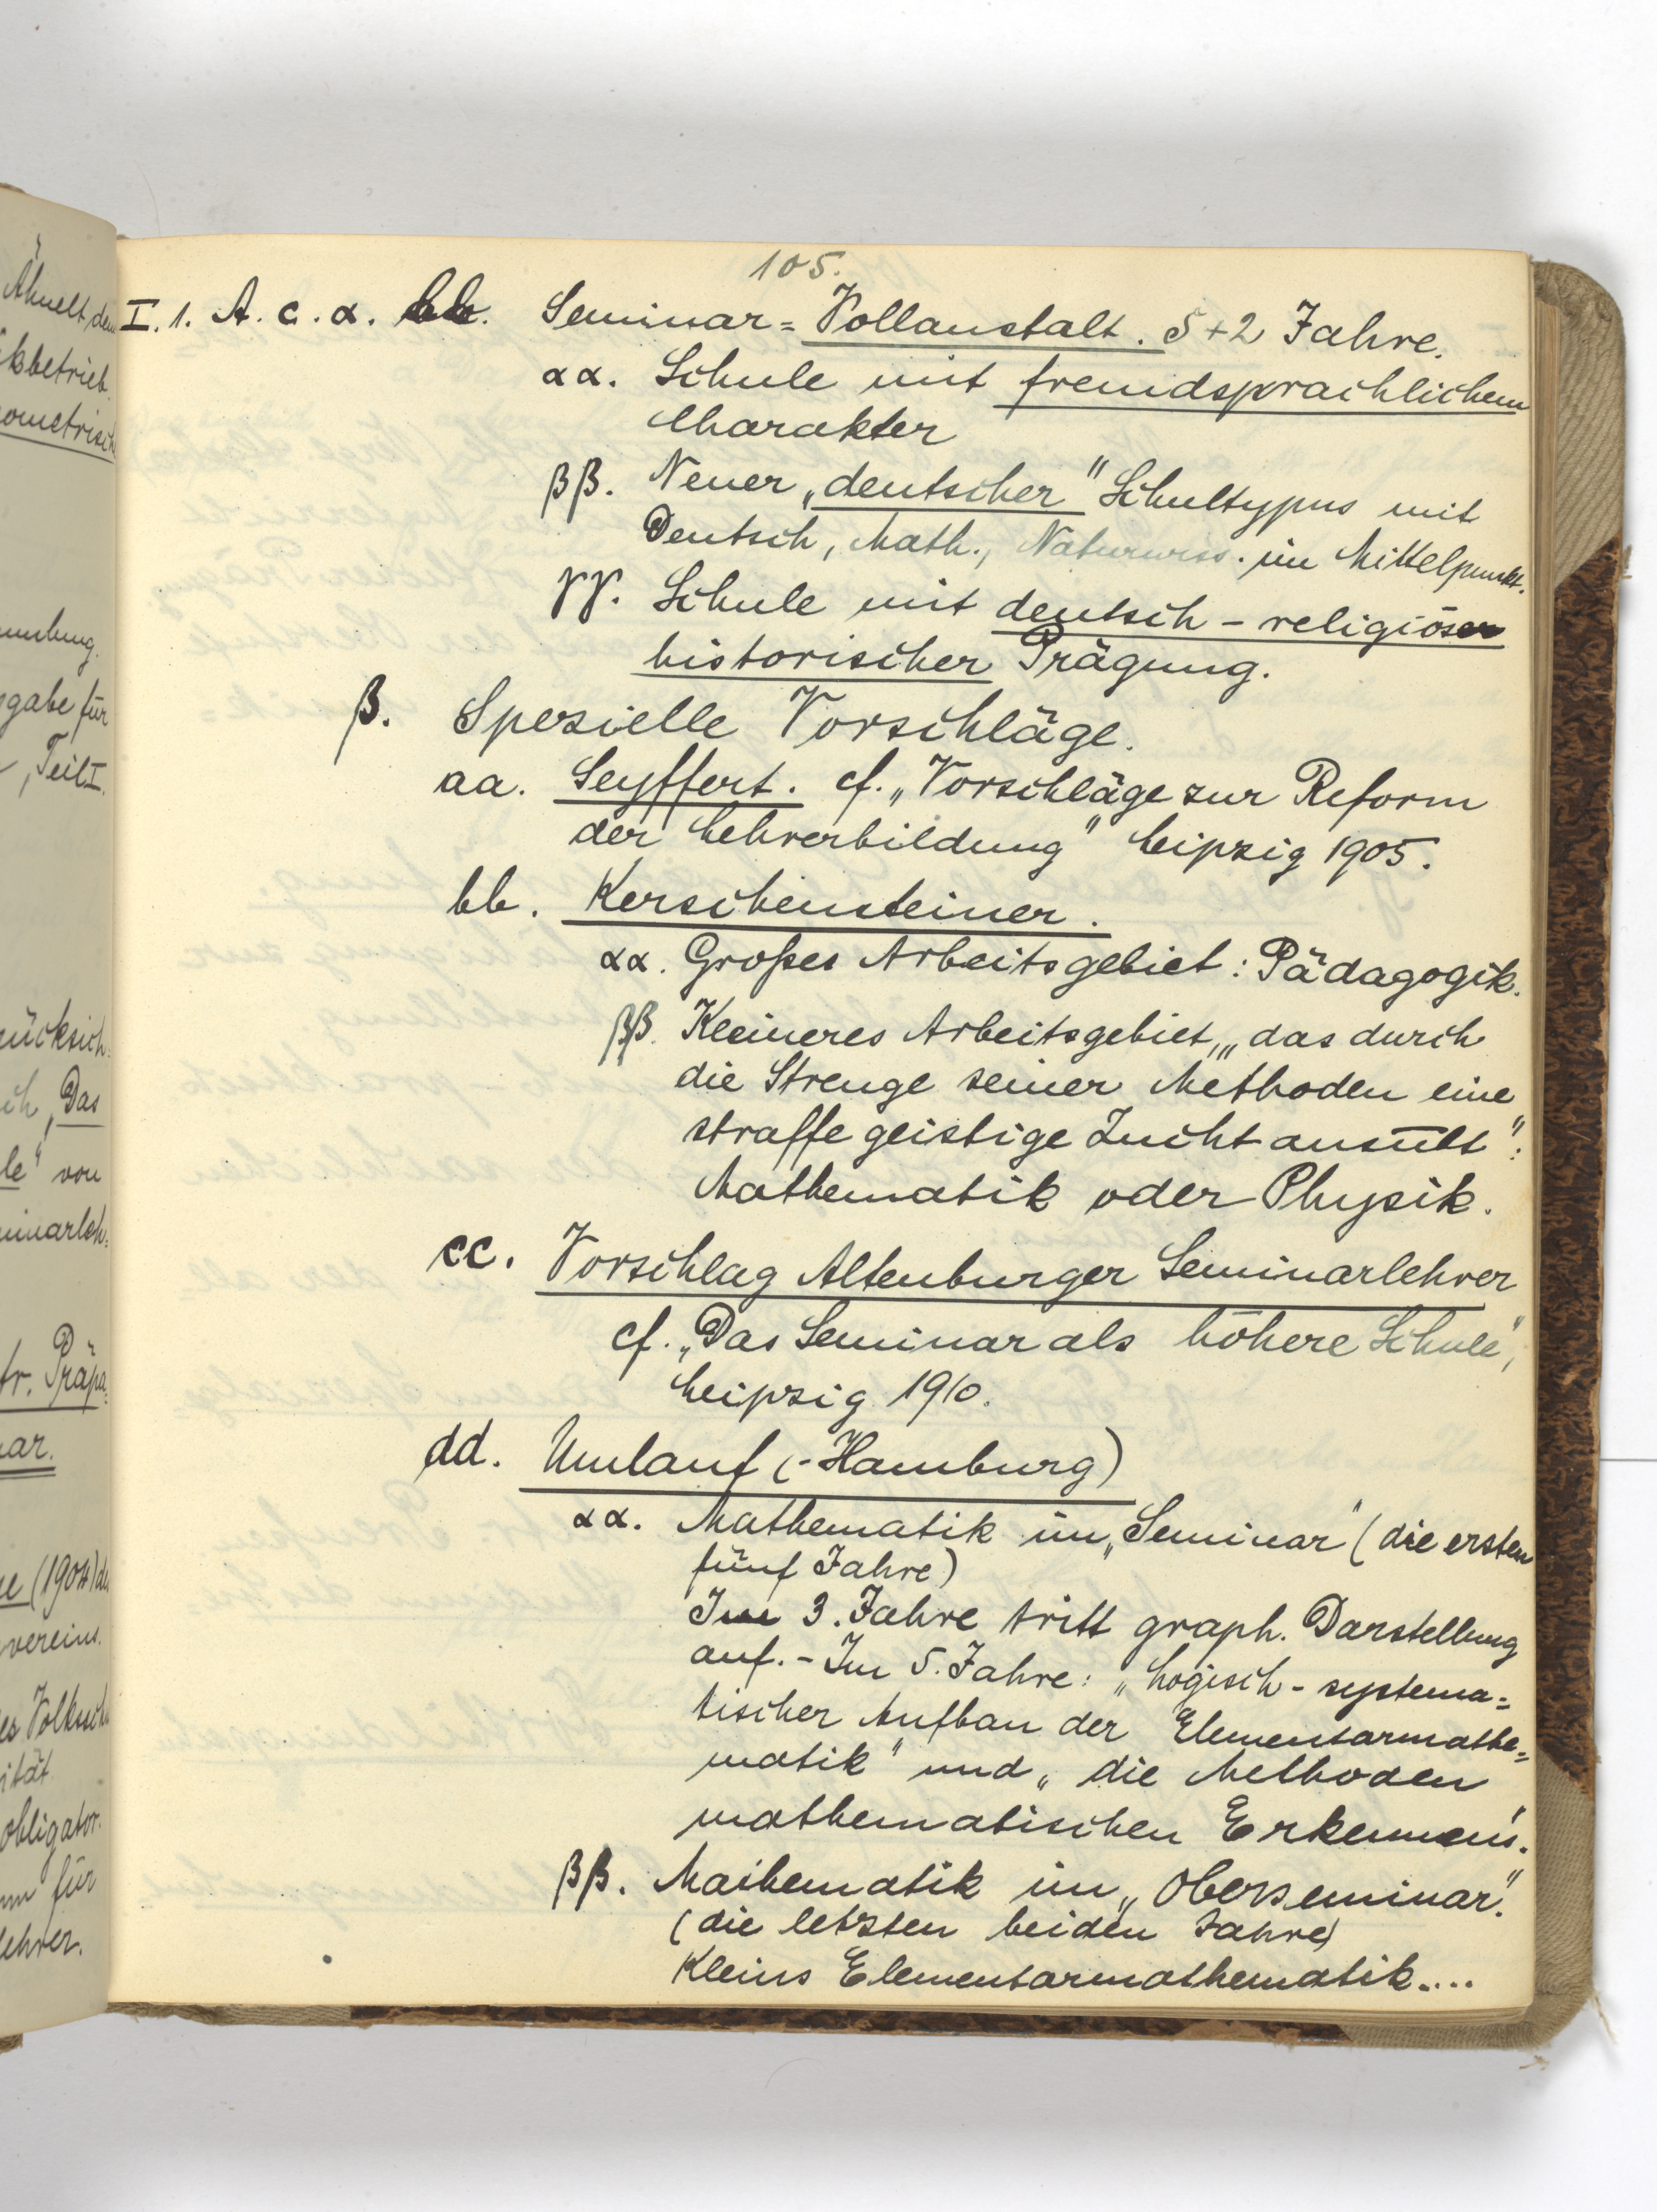 Ähnelt dem
kbetrieb.
ometrisch
gabe für
, Teil I.
rücksich=
ich, Das
le" von
minarleh=
fr. Präpa=
ar.
(1904) de
vereins.
es Volkssch
ität
obligator.
für
lehrer.
105.
I. 1. A. c. α. bb. Seminar=Vollanstalt. 5+2 Jahre.
αα. Schule mit fremdsprachlichem
Charakter
ββ. Neuer „deutscher" Schultypus mit
Deutsch, Math., Naturwiss. im Mittelpunkt.
γγ. Schule mit deutsch-religiöser
historischer Prägung.
β. Spezielle Vorschläge.
aa. Seyffert. cf. „Vorschläge zur Reform
der Lehrerbildung" Leipzig 1905.
bb. Kerschensteiner.
αα. Großes Arbeitsgebiet: Pädagogik.
ββ. Kleineres Arbeitsgebiet, „das durch
die Strenge seiner Methoden eine
straffe geistige Zucht ausübt":
Mathematik oder Physik.
cc. Vorschlag Altenburger Seminarlehrer
cf. „Das Seminar als höhere Schule",
Leipzig 1910.
dd. Umlauf (-Hamburg)
αα. Mathematik im „Seminar" (die ersten
fünf Jahre)
Im 3. Jahre tritt graph. Darstellung
auf. - Im 5. Jahre: „Logisch-systema=
tischer Aufbau der Elementarmathe=
matik" und „die Methoden
mathematischen Erkennens".
ββ. Mathematik im „Oberseminar".
(die letzten beiden Jahre)
Kleins Elementarmathematik....